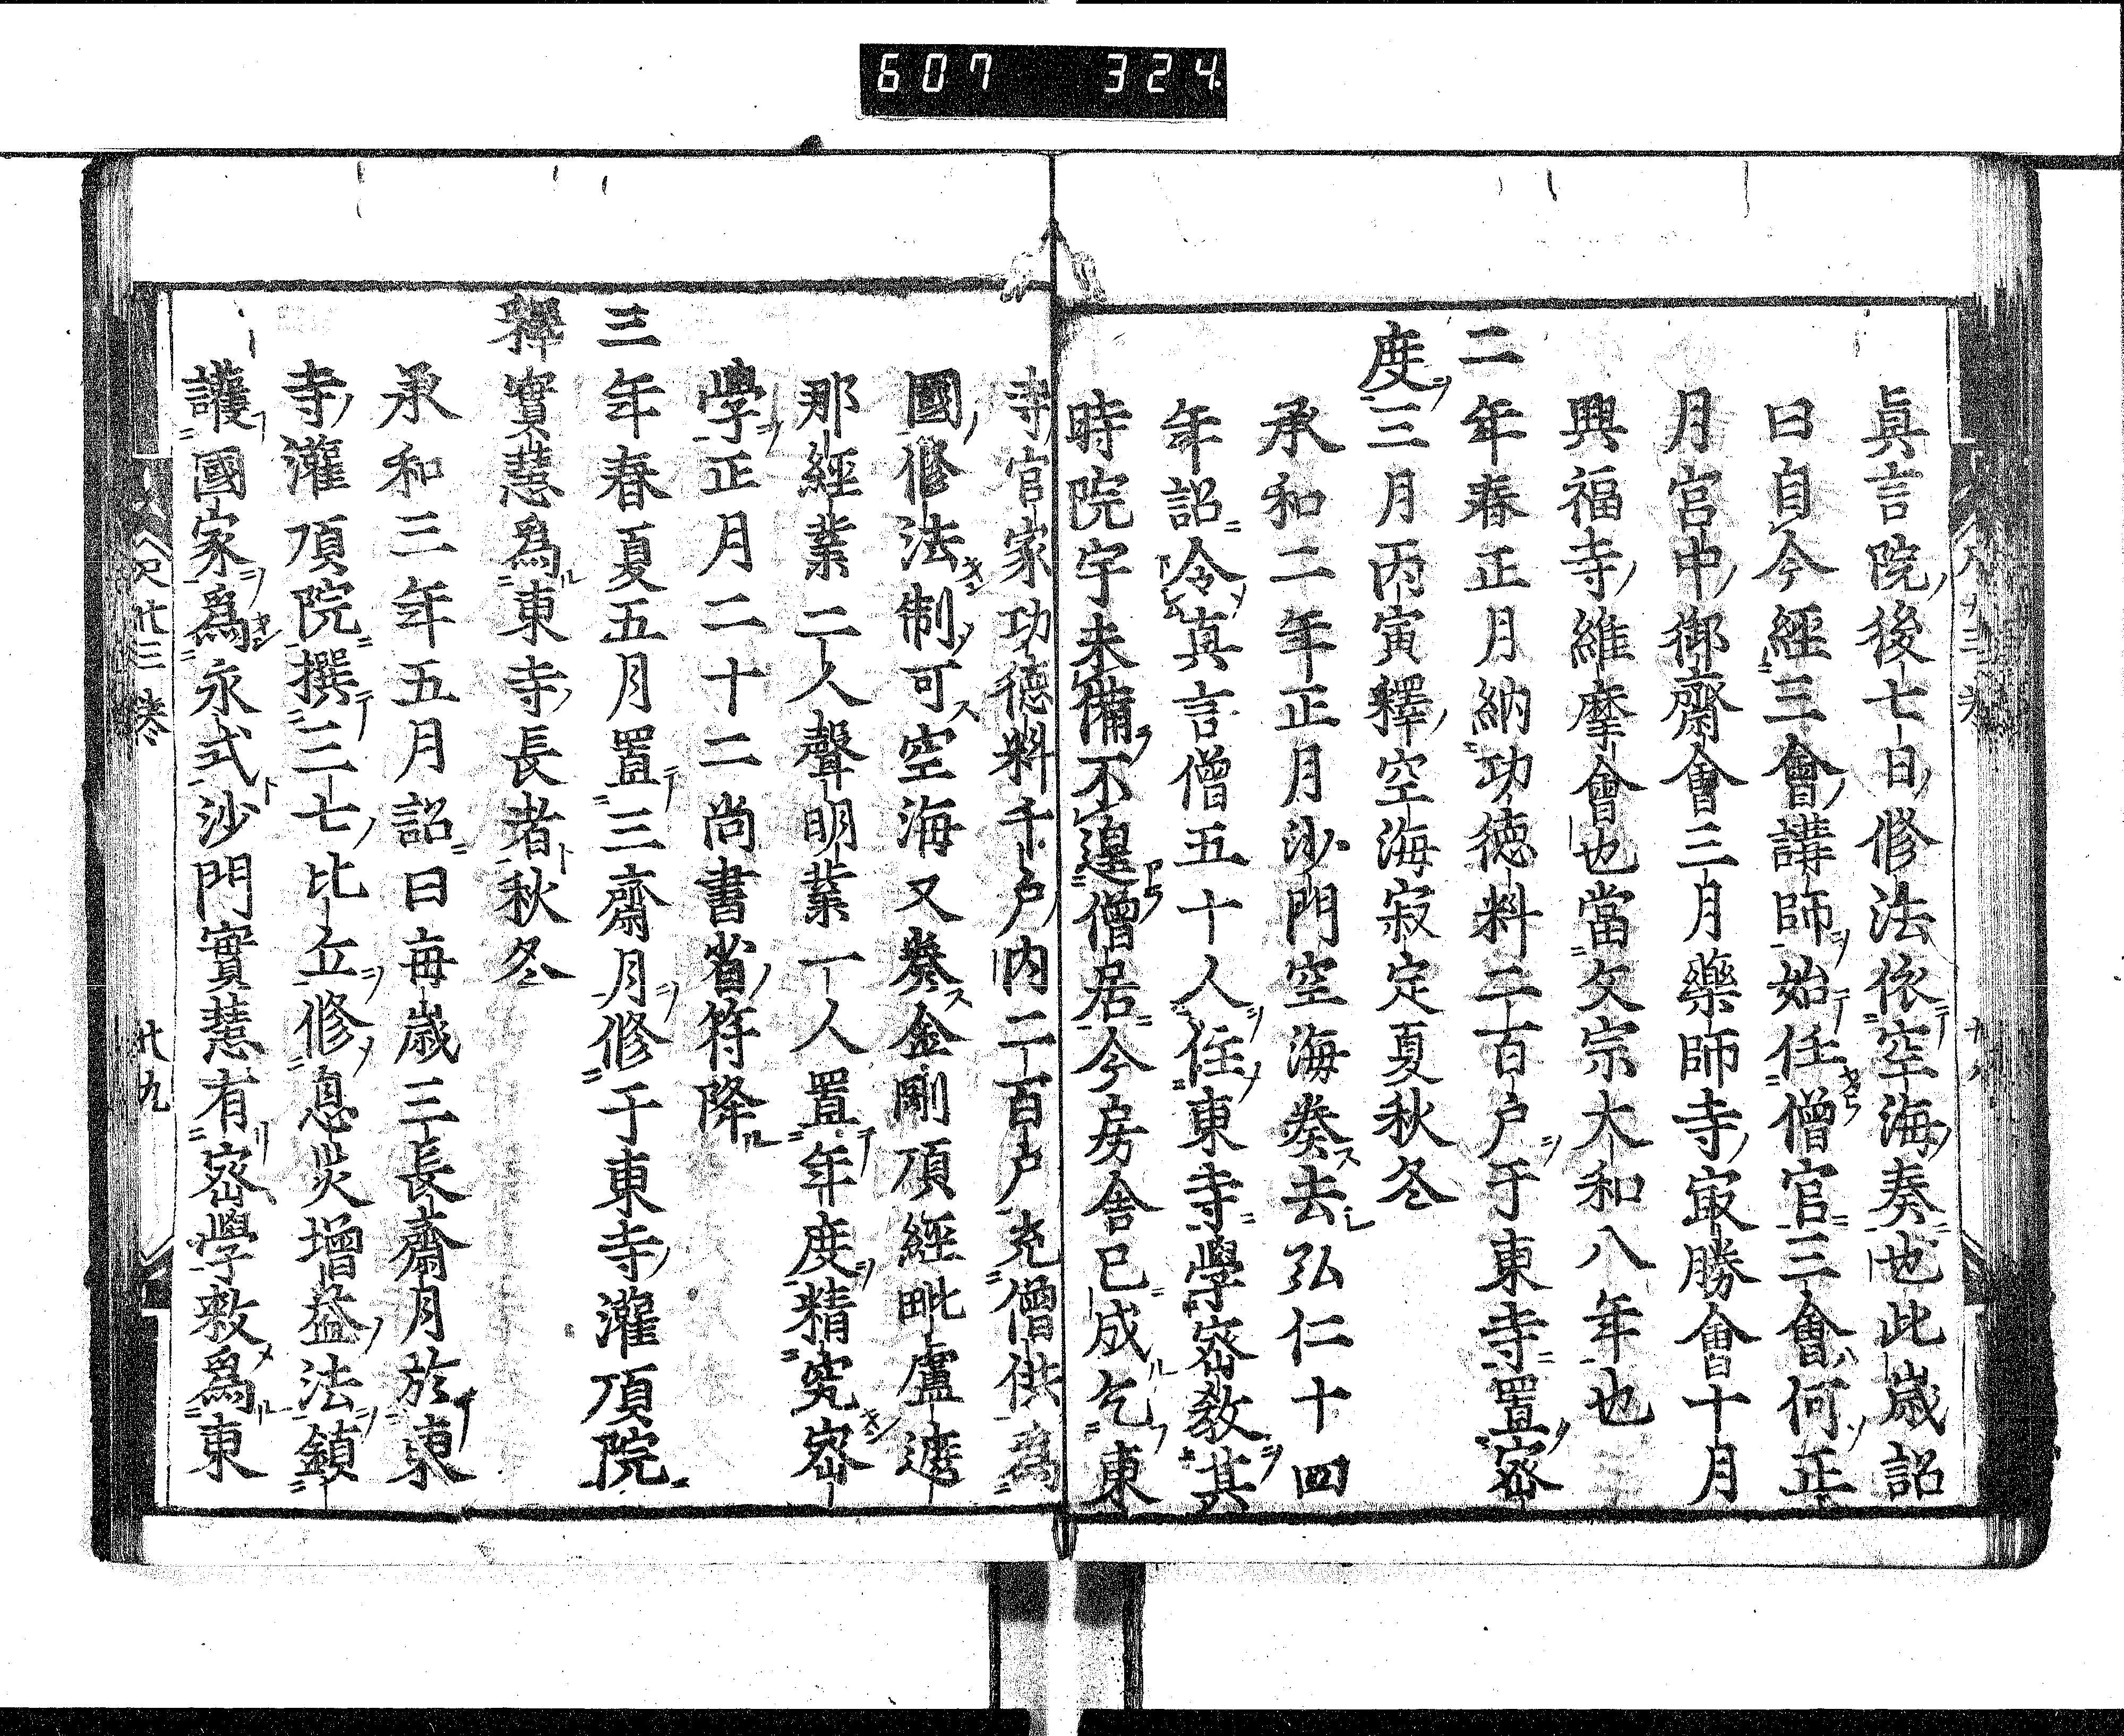 607 324
眞言院後七日修法依空海奏也此歳詔
曰自今經三會講師始任僧官三會何正
月宮中御齋會三月藥師寺㝡勝會十月
興福寺維摩會也當文宗大和八年也
二年春正月納功德料二百户于東寺置宻
度三月丙寅釋空海寂定夏秋冬
承和二年正月沙門空海奏去弘仁十四
年詔令真言僧五十人住東寺學宻教其
時院宇未備不遑僧居今房舎已成乞東
寺官家功德料千户内二百户充僧供為
國修法制可空海又奏金剛頂經毗盧遮
那經業二人聲明業一人置年度精究宻
學正月二十二尚書省符降
三年春夏五月置三齋月修于東寺灌頂院
釋實慧爲東寺長者秋冬
承和三年五月詔曰毎歳三長齋月於東
寺灌頂院撰三七比丘修息災增益法鎮
護國家爲永式沙門實慧有宻學敕爲東
卷 廿三 廿九